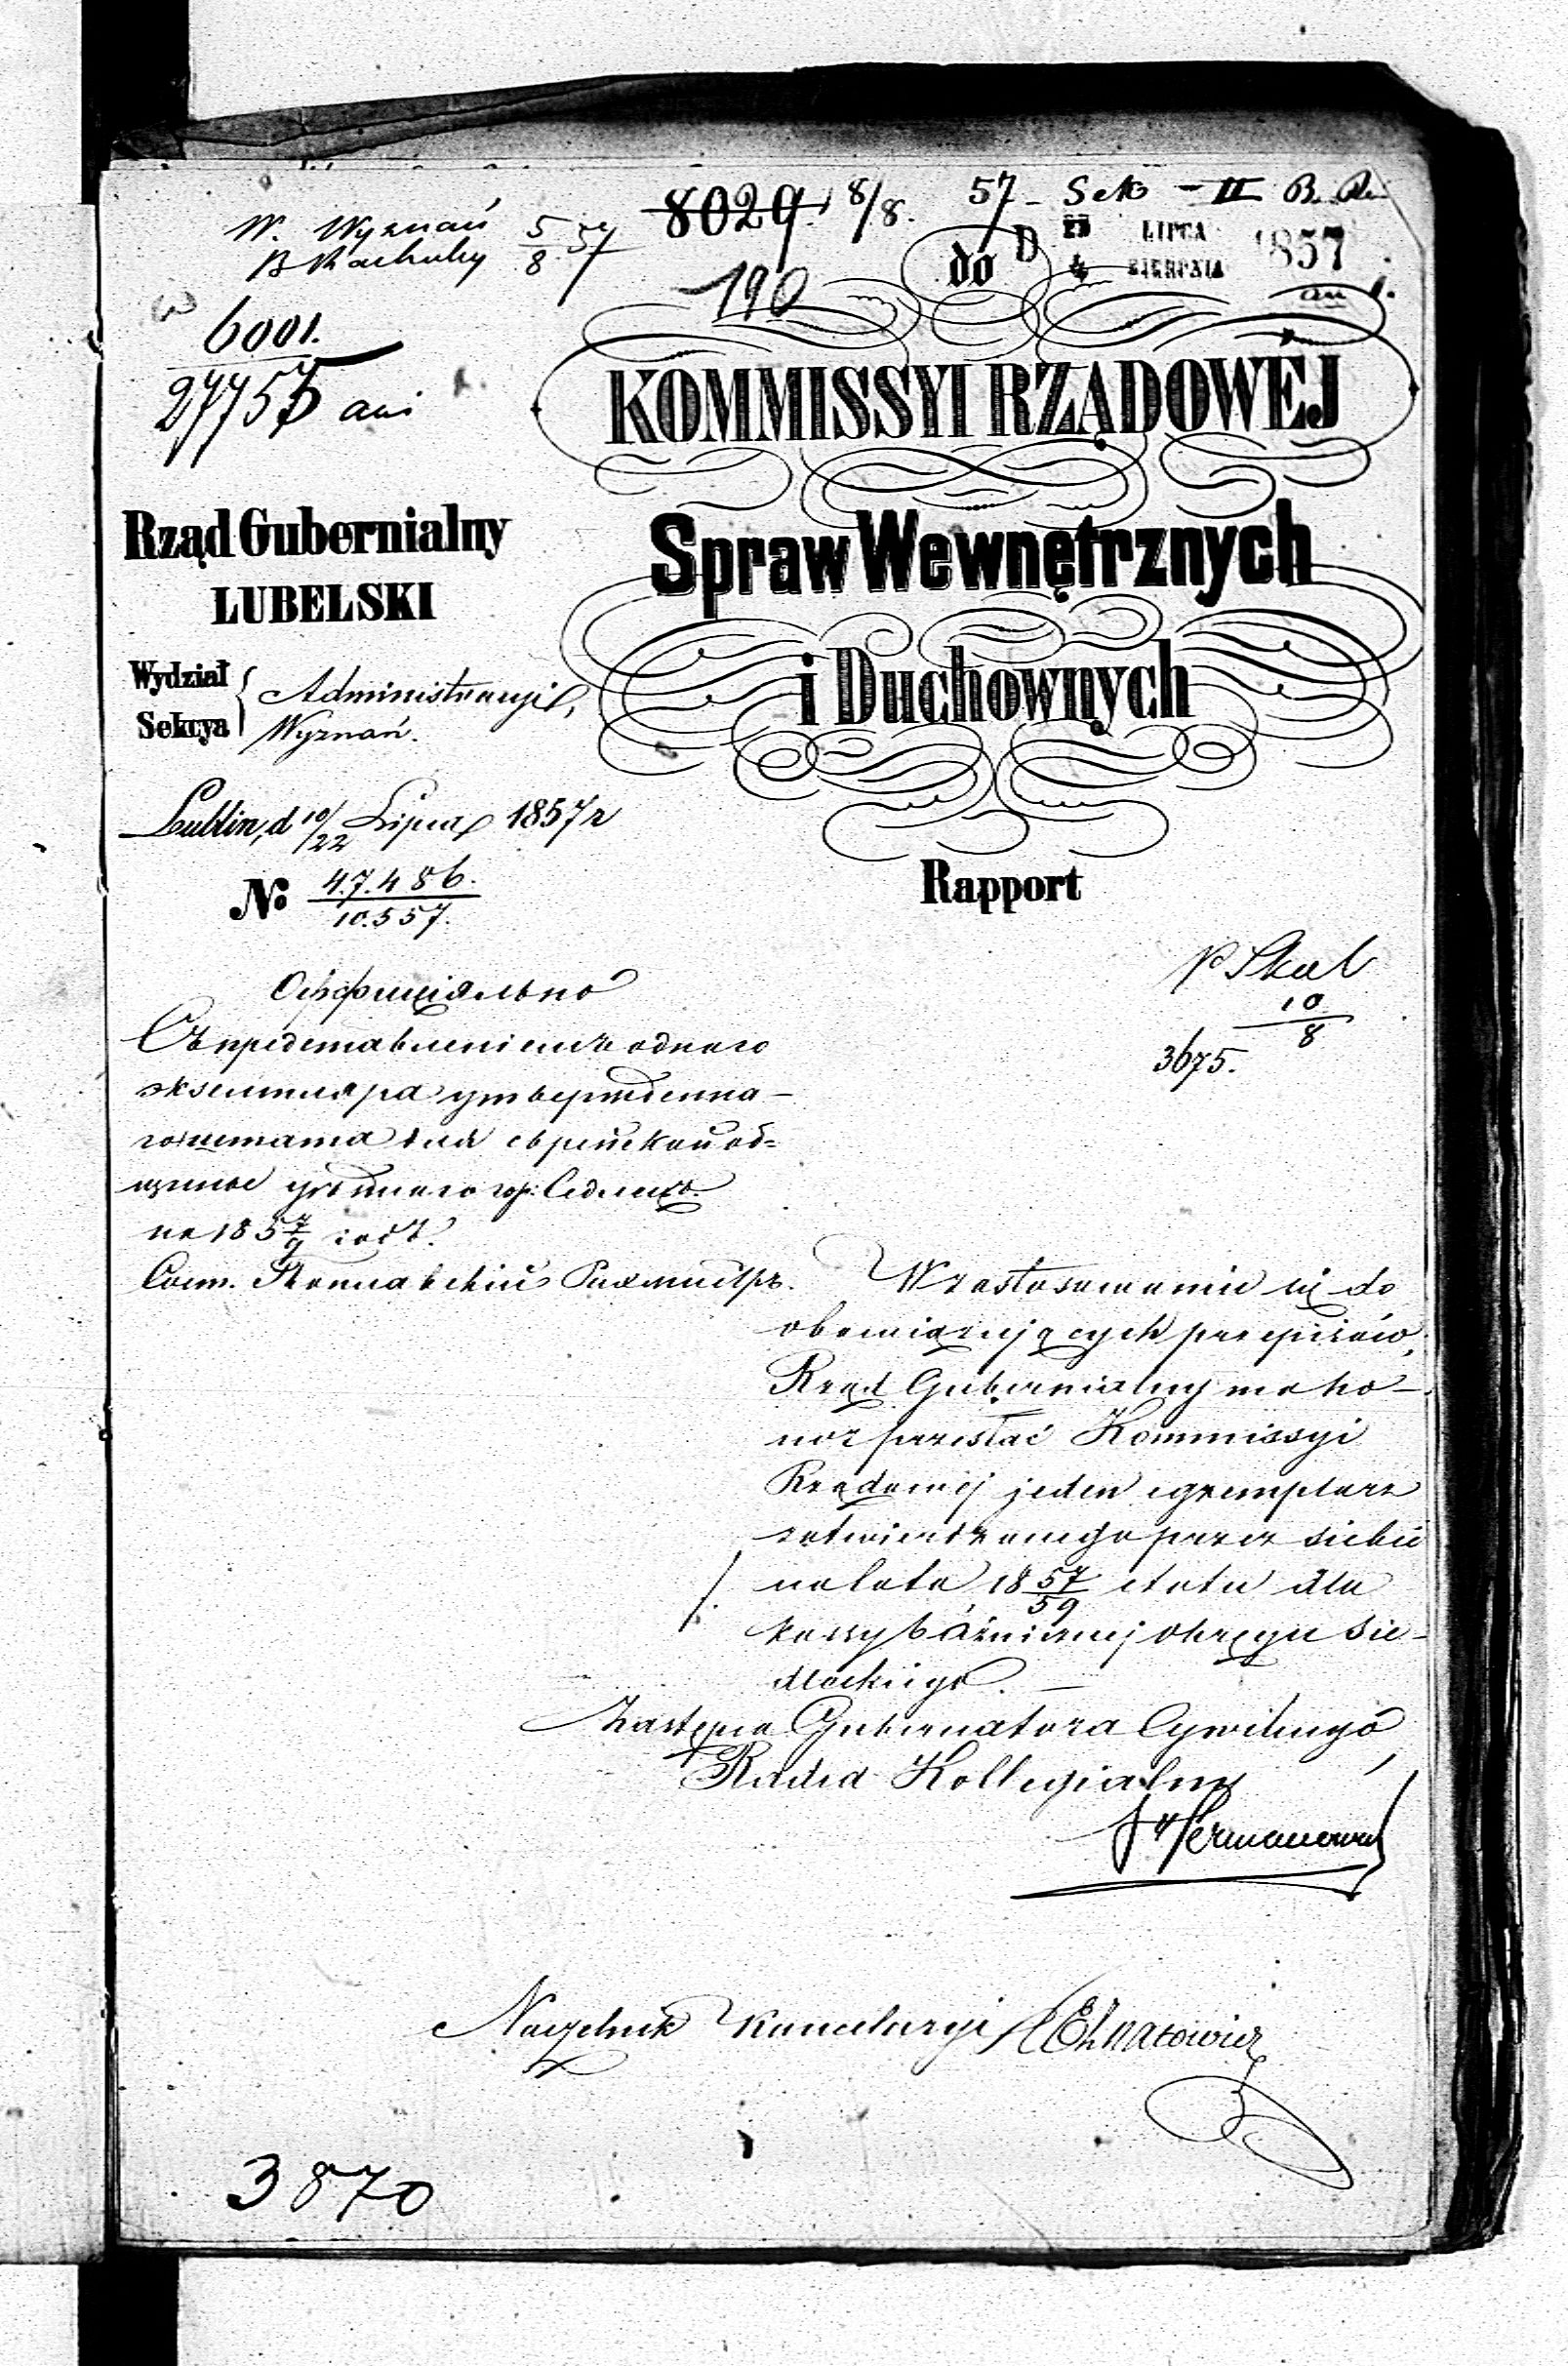 W. Wyznań 5/8 57
B Rachuby
8029 8/8. 57 - Sek - II B.
190
do
D 23 LIPCA
4 SIERPNIA 1857
6001.
27757
KOMMISSYI RZĄDOWÉJ
Spraw Wewnętrznych
i Duchownych
Rapport
Rząd Gubernialny
LUBELSKI
Wydział Administracyjl,
Sekcya Wyznań.
Lublin, d 10/22 Lipca 1857 r
No 47.486.
10.557.
Оффиціяльно
Съ представленіемъ однаго
экземпляра утвержденна-
го штата для еврейской об=
щины гор: Седлецъ
на 185 7/9 годъ.
Сост.
P Skal
10
8
3675.
W zastosowaniu się do
obowiązujących przepisów,
Rząd Gubernialny ma ho-
nor przesłać Kommissyi
Rządowej jeden egzemplarz
zatwierdzonego przez siebie
na lata 18 57/59 etatu dla
kassy bóżnicznej okręgu Sie-
dleckiego. —
Zastępca Gubernatora Cywilnego,
Radca Kollegialny
Naczelnik Kancelaryi
3870